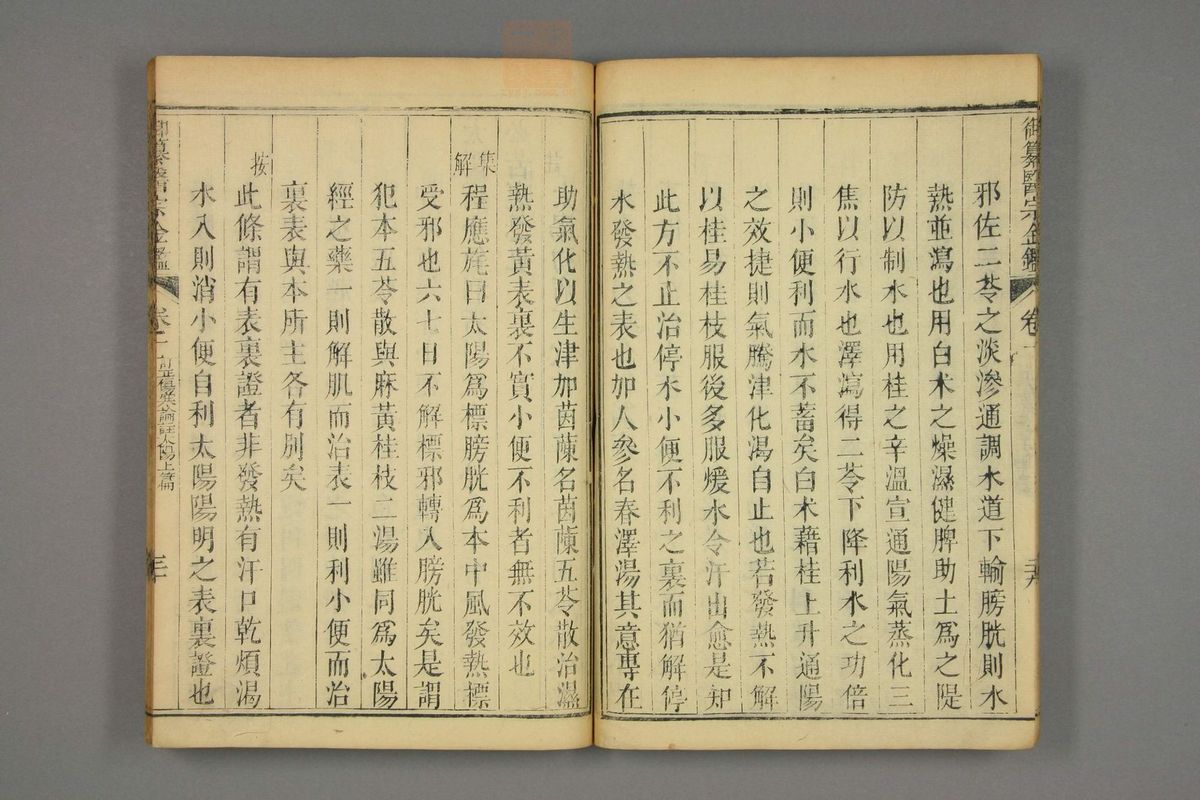 御纂醫宗金鑑
卷一
邪佐二苓之淡滲通調水道下輸膀胱則水
熱並瀉也用白术之燥濕健脾助土爲之隄
防以制水也用桂之辛溫宣通陽氣蒸化三
焦以行水也澤瀉得二苓下降利水之功倍
則小便利而水不蓄矣白术藉桂上升通陽
之效捷則氣騰津化渴自止也若發熱不解
以桂易桂枝服後多服煖水令汗出愈是知
此方不止治停水小便不利之裏而猶解停
水發熱之表也加人參名春澤湯其意專在
助氣化以生津加茵蔯名茵蔯五苓散治濕
熱發黃表裏不實小便不利者無不效也
集解
程應旄曰太陽爲標膀胱爲本中風發熱標
受邪也六七日不解標邪轉入膀胱矣是謂
犯本五苓散與麻黃桂枝二湯雖同爲太陽
經之藥一則解肌而治表一則利小便而治
裏表與本所主各有別矣
按
此條謂有表裏證者非發熱有汗口乾煩渴
水入則消小便自利太陽陽明之表裏證也
御纂醫宗金鑑
卷一
訂正傷寒論註太陽上篇